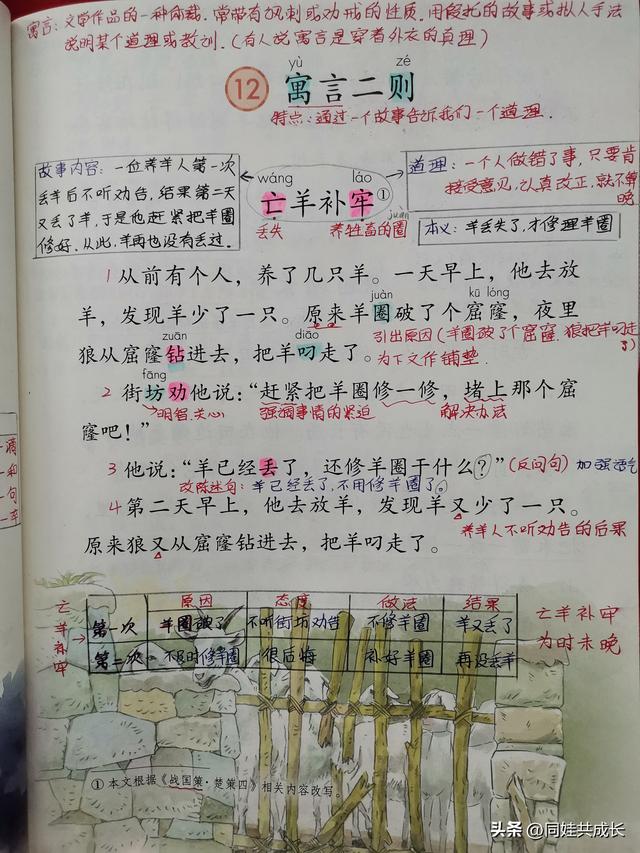 寓言：文学作品的一种体裁.常带有讽刺或劝戒的性质.用假托的故事或拟人手法
说明某个道理或教训.(有人说寓言是穿着外衣的真理)
yù zé
12 寓言二则
特点：通过一个故事告诉我们一个道理.
故事内容：一位养羊人第一次
丢羊后不听劝告，结果第二天
又丢了羊，于是他赶紧把羊圈
修好.从此，羊再也没有丢过.
wáng láo
亡羊补牢①
丢失
juàn
养牲畜的圈
道理：一个人做错了事，只要肯
接受意见，认真改正，就不算
晚
本义：羊丢失了，才修理羊圈
1 从前有个人，养了几只羊。一天早上，他去放
juàn kū lóng
羊，发现羊少了一只。原来羊圈破了个窟窿，夜里
zuān diāo
狼从窟窿钻进去，把羊叼走了。
引出原因(羊圈破了个窟窿.狼把羊叼走
了)
为下文作铺垫.
fāng
2 街坊劝他说：“赶紧把羊圈修一修，堵上那个窟
窿吧！”
强调事情的紧迫
解决办法
3 他说：“羊已经丢了，还修羊圈干什么？”
(反问句)加强语气
改陈述句：羊已经丢了，不用修羊圈了。
4 第二天早上，他去放羊，发现羊又少了一只。
原来狼又从窟窿钻进去，把羊叼走了。
养羊人不听劝告的后果
亡羊补牢
原因 态度 做法 结果
第一次 羊圈破了 不听街坊劝告 不修羊圈 羊又丢了
第二次 不及时修羊圈 很后悔 补好羊圈 再没丢羊
亡羊补牢
为时未晚
① 本文根据《战国策·楚策四》相关内容改写。
滴
和
句
头条 @同娃共成长